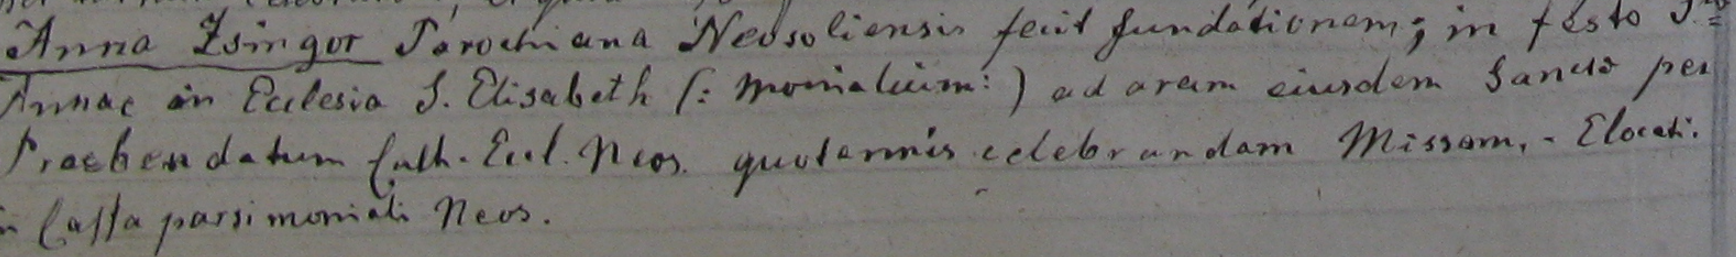 Anna Zsingor Parochiana Neosoliensis fecit fundationem; in festo S.
Annae in Ecclesia S. Elisabeth (: Monialium :) ad aram eiusdem Sanctae per
Praebendatum Cath. Eccl. Neos. quotannis celebrandam Missam, - Elocati.
in Cassa parsimoniali Neos.